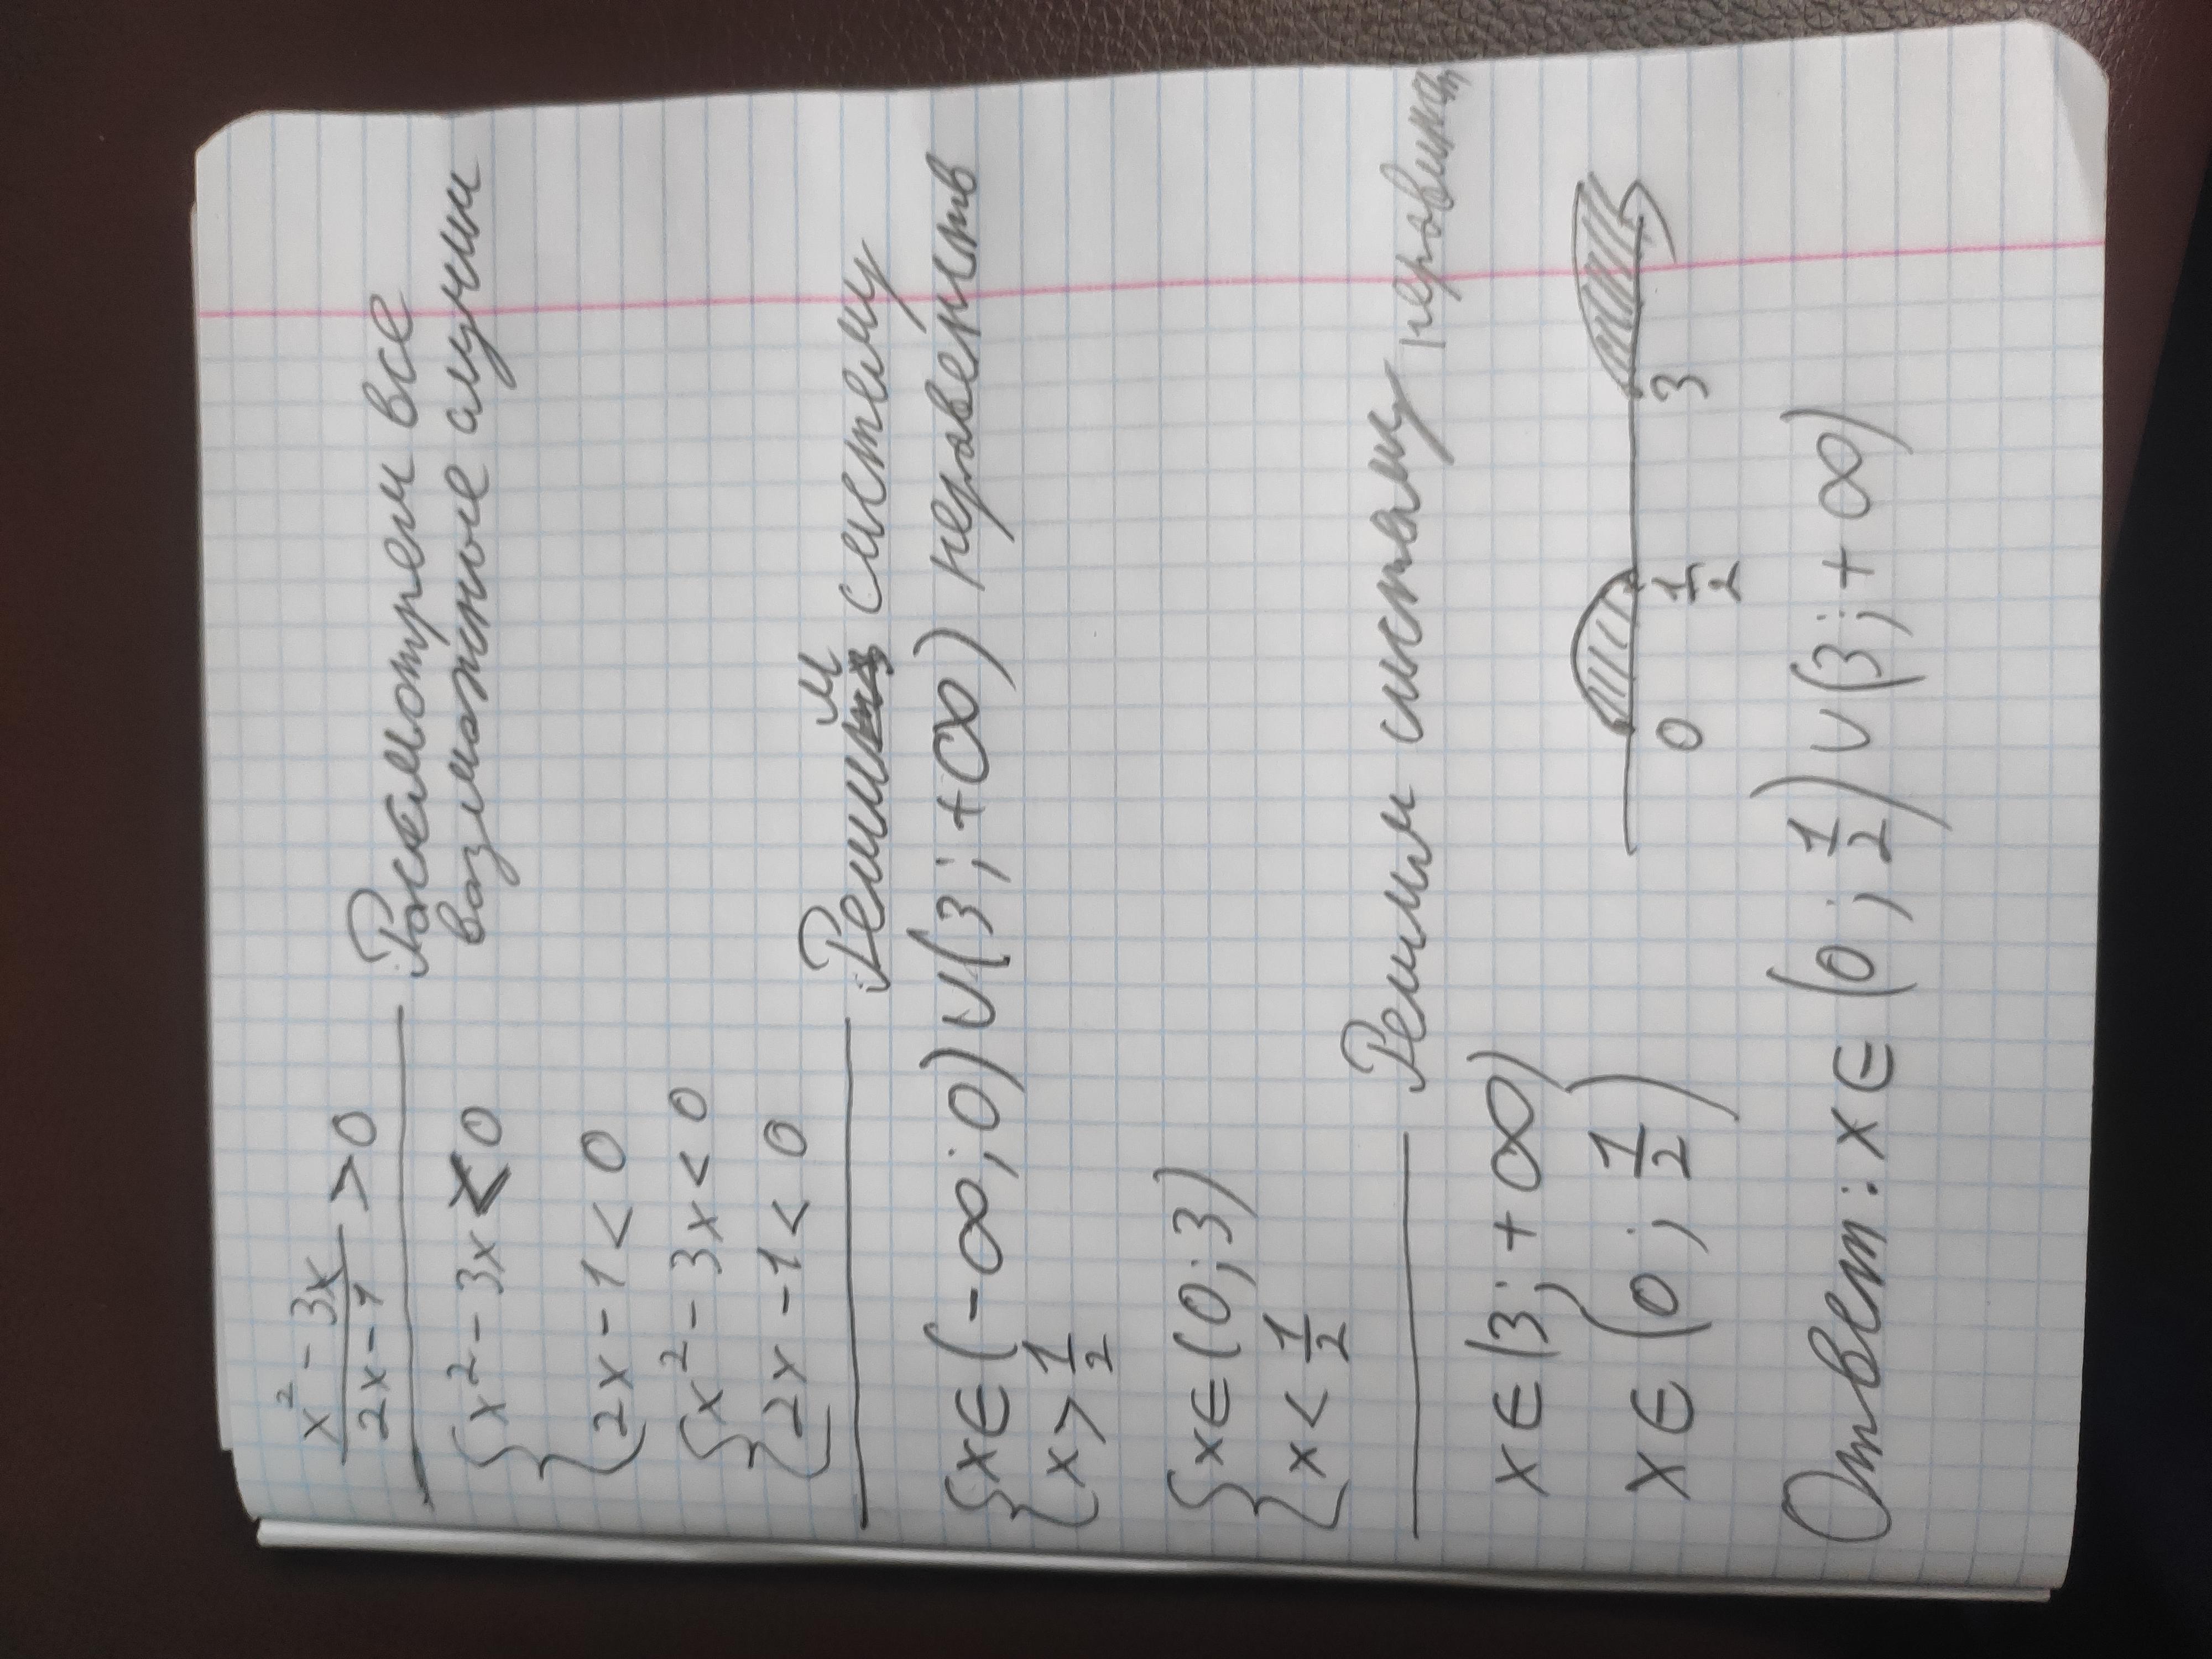 x² - 3x / 2x - 1 > 0
Рассмотрем все
возможные случаи
{ x² - 3x < 0
{ 2x - 1 < 0
{ x² - 3x < 0
{ 2x - 1 < 0
Решим систему
неравенств
{ x ∈ (-∞; 0) ∪ (3; +∞)
{ x > 1/2
{ x ∈ (0; 3)
{ x < 1/2
Решим систему
x ∈ (3; +∞)
x ∈ (0; 1/2)
0 1/2 3
Ответ: x ∈ (0; 1/2) ∪ (3; +∞)